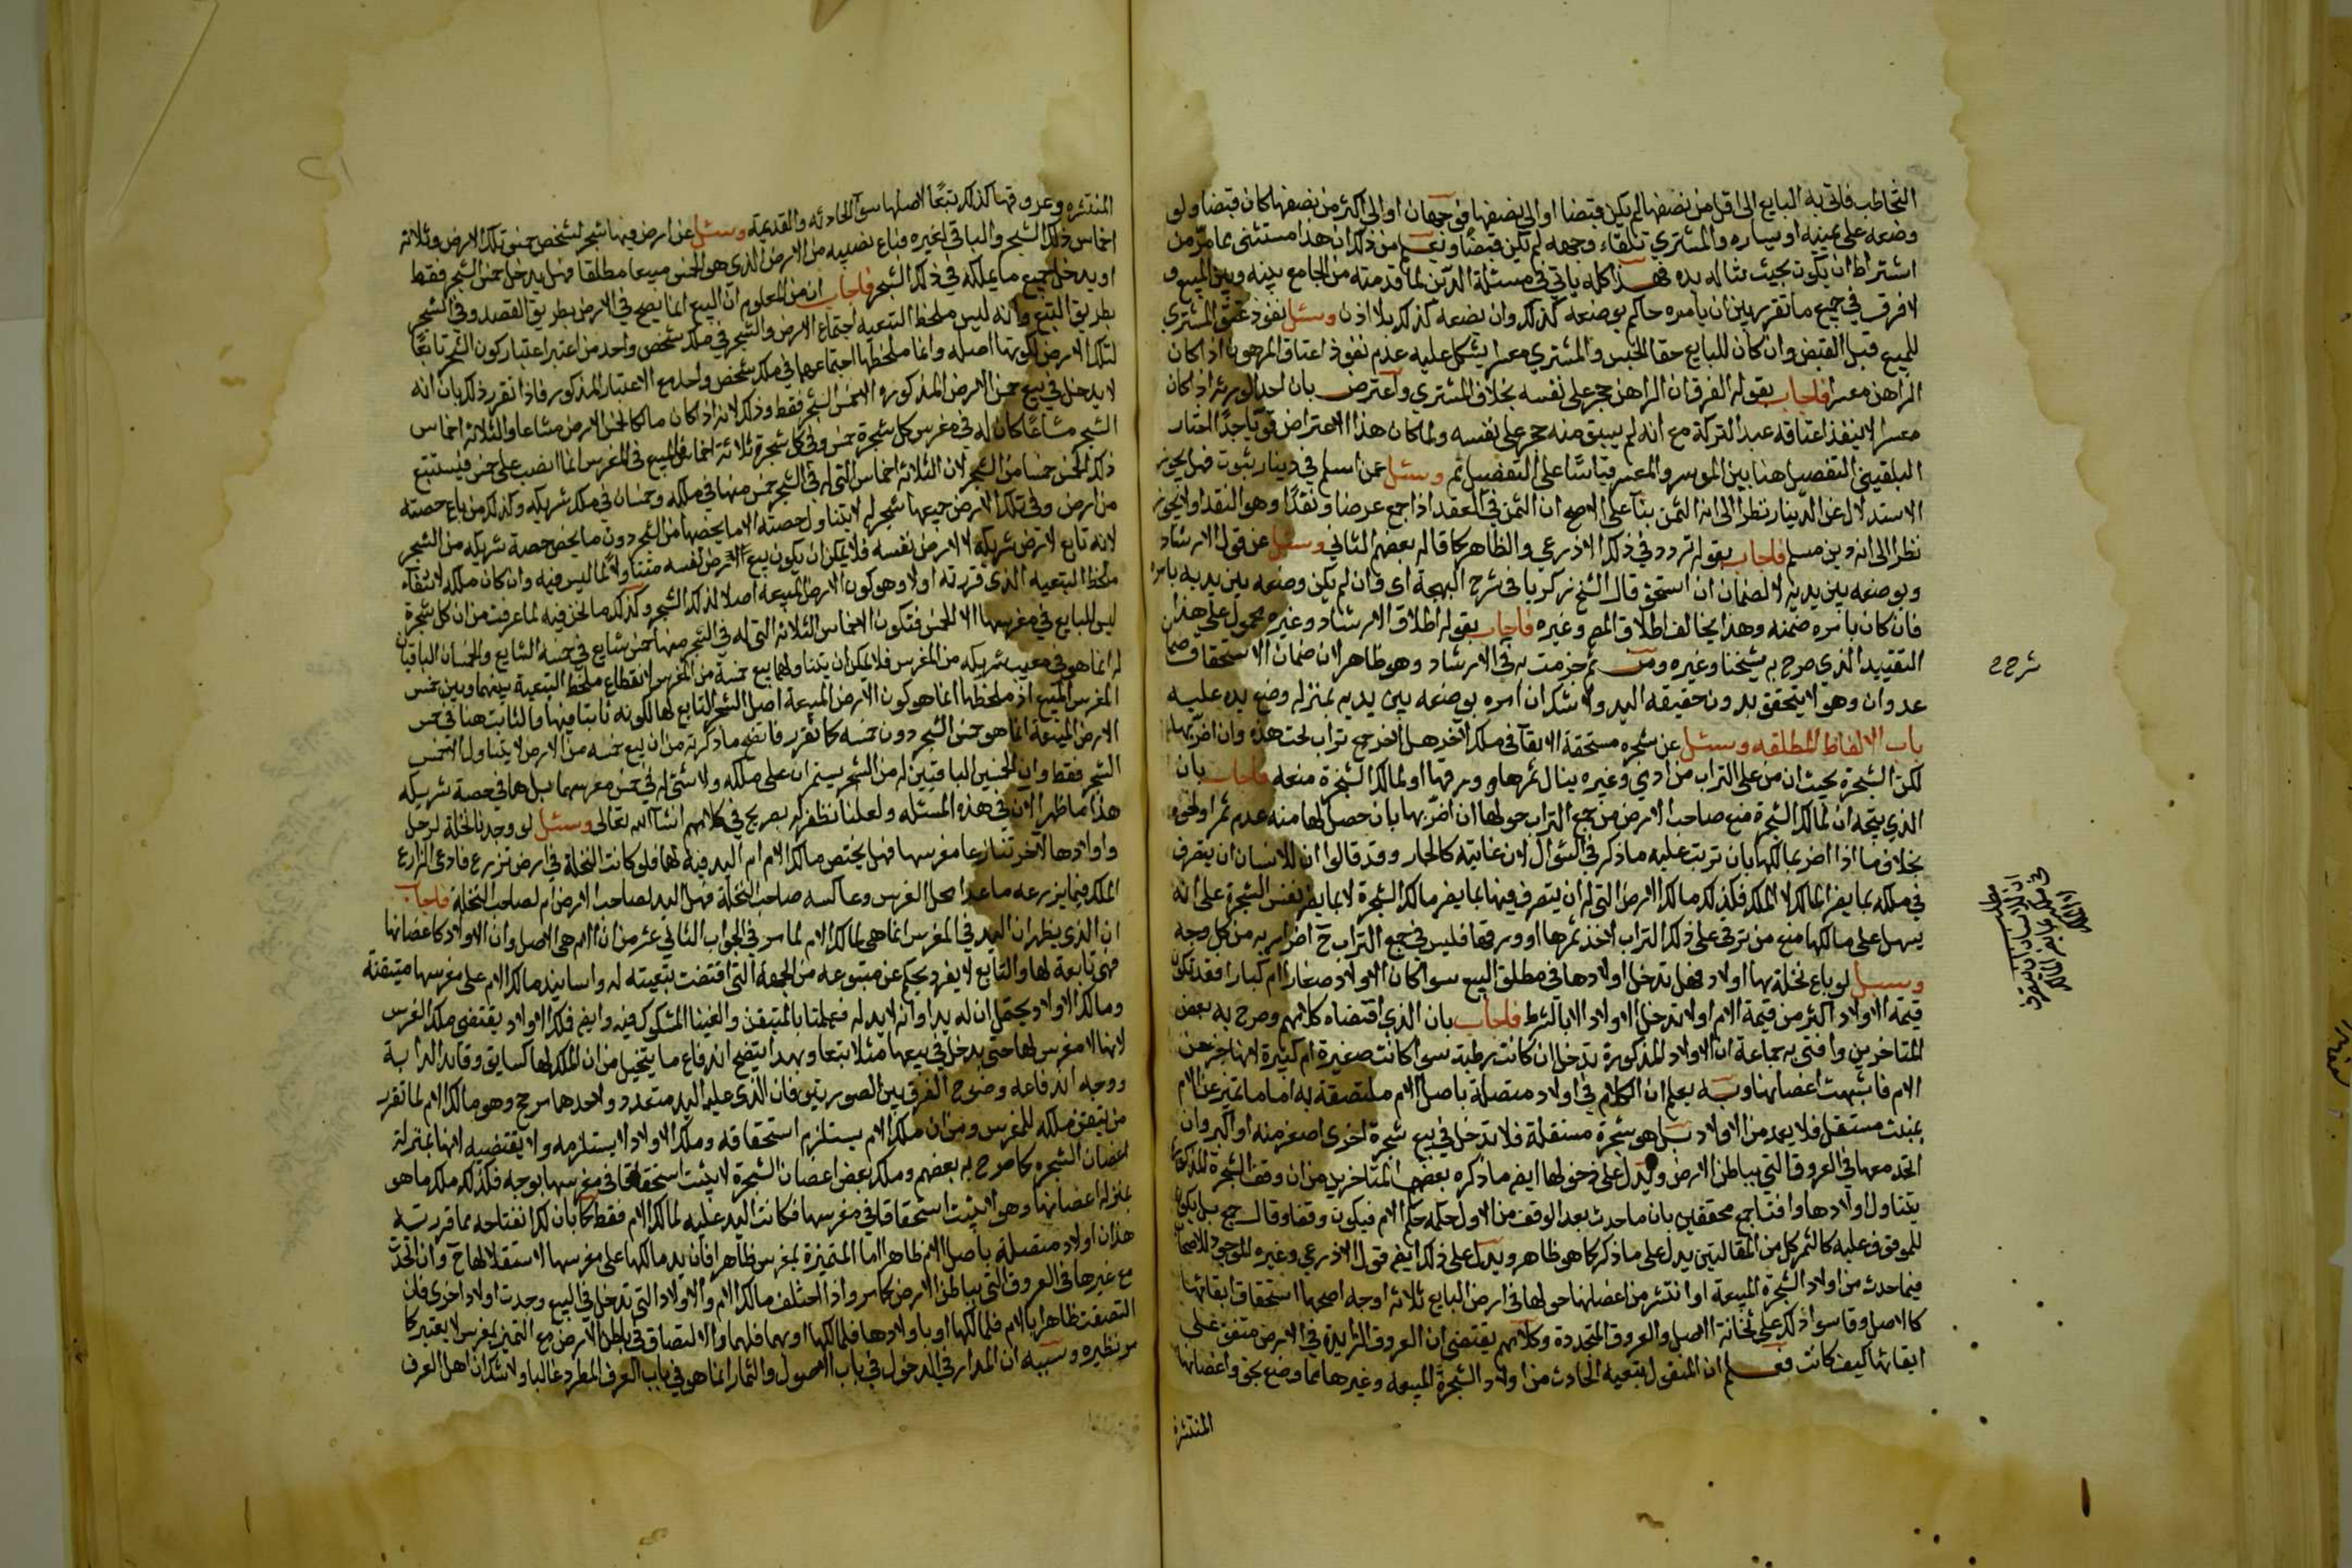 التخاطب فاتى به البايع الى اقل من نصفها لم يكن قبضا او الى نصفها فوجهان او الى اكثر من نصفها كان قبضا ولو
وضعه على يمينه او يساره والمشتري تلقاء وجهه لم يكن قبضا ونعلم من ذلك ان هذا مستثنى مما مر من
اشتراط ان يكون بحيث تناله يده فهذا كله ياتي في مسئلة الدين لما قدمته من الجامع بينه وبين المبيع و
لا فرق في جميع ما تقرر بين ان يامره حاكم بوضعه كذلك وان يضعه كذلك بلا اذن وسئل نفوذ عتق المشتري
للمبيع قبل القبض وان كان للبايع حق الحبس والمشتري معسر يشكل عليه عدم نفوذ اعتاق المرهون اذا كان
الراهن معسرا فاجاب بقوله الفرق ان الراهن حجر على نفسه بخلاف المشتري واعترض بان احد الورثة اذا كان
معسرا لا ينفذ اعتاقه عبد التركة مع انه لم يسبق منه حجر على نفسه ولما كان هذا الاعتراض قويا جدا اختار
البلقيني التفصيل هنا بين الموسر والمعسر قياسا على التفصيل ثم وسئل عمن اسلم في دينار بثوت فهل يجوز
الاستدلال عن الدينار نظرا الى انه الثمن بناء على الاصح ان الثمن في العقد اذا جمع عرضا ونقدا وهو النقد او لا يجوز
نظرا الى انه دين مسلم فاجاب بقوله تردد في ذلك الاذرعي والظاهر كما قاله بعضهم الثاني وسئل عن قول الارشاد
وبوضعه بين يديه لا لضمان ان استحق قال الشيخ زكريا في شرح البهجة اى فان لم يكن وضعه بين يديه بامره
فان كان بامره ضمنه وهذا يخالف اطلاق المص وغيره فاجاب بقوله اطلاق الارشاد وغيره محمول على هذا
التقييد الذي صرح به شيخنا وغيره ومن ثم جزمت به في الارشاد وهو ظاهر لان ضمان الاستحقاق ضمان
عدوان وهو لا يتحقق بدون حقيقة اليد ولا شك ان امره بوضعه بين يديه بمنزله وضع يده عليه
باب الالفاظ المطلقه وسئل عن شجره مستحقة الابقآ في ملك الآخر هل لاخر جمع تراب تحت هذه وان اضر بها
لكن الشجرة بحيث ان من على التراب من ادمي وغيره ينال ثمرها وورقها او لمالك الشجرة منعه فاجاب بان
الذي يتجه ان لمالك الشجرة منع صاحب الارض من جمع التراب حولها ان اضر بها بان حصل لها منه عدم ثمر او نحوه
بخلاف ما اذا اضر بمالكها بان ترتب عليه ما ذكر في السؤال لان غايته كالجار وقد قالوا ان للانسان ان يتصرف
في ملكه بما يضر المالك لا الملك فكذلك مالك الارض التي له ان يتصرف فيها بما يضر مالك الشجرة لا بما يضر نفس الشجرة على انه
يسهل على مالكها منع من ترقى على ذلك التراب لاخذ ثمرها او ورقها فليس في جمع التراب ح اضرار به من كل وجه
وسئل لو باع نخلة بها اولاد فهل تدخل اولادها في مطلق البيع سوا كان الاولاد صغارا ام كبارا فقد تكون
قيمة الاولاد اكثر من قيمة الام او لا تدخل الاولاد الا بالشرط فاجاب بان الذي اقتضاه كلامهم وصرح به بعض
المتاخرين وافتى به جماعة ان الاولاد المذكورة تدخل ان كانت رطبة سوا كانت صغيرة ام كبيرة لانها جزء من
الام فاشبهت اغصانها وبه يعلم ان الكلام في اولاد متصلة باصل الام ملتصقة به اما ما تميز عن الام
بمنبت مستقل فلا يعد من الاولاد بل هو شجرة مستقلة فلا تدخل في بيع شجرة اخرى اصغر منه او اكبر وان
اتحد معها في العروق التي بباطن الارض ويدل على دخولها ايضم ما ذكره بعض المتاخرين من ان وقف الشجرة المذكورة
يتناول اولادها وافتا جمع محققين بان ما حدث بعد الوقف من الاول حكمه حكم الام فيكون وقفا وقال جمع بل يكون
للموقوف عليه كالثمر كل من المقالتين يدل على ما ذكر كما هو ظاهر ويدل على ذلك ايضم قول الاذرعي وغيره الموجود للاصحاب
فيما حدث من اولاد الشجرة المبيعة او انتشر من اغصانها حولها في ارض البايع ثلاثه اوجه اصحها استحقاق ابقائها
كالاصل وقاسوا ذلك على ثخانة الاصل والعروق المتجددة وكلامهم يقتضي ان العروق الزايدة في الارض متفق على
ابقائها كيف كانت فعلم ان المنقول بتبعية الحادث من اولاد الشجرة المبيعه وغيرها مما وضع بحق واغصانها
المنتشرة
شرح ح
مطلب
ان للانسان ان يتصرف
في ملكه بما يضر المالك
لا الملك
المنتشره وعروقها كذلك تبعا لاصلها سوآ الحادثه والقديمة وسئل عن ارض فيها شجر لشخص خمس تلك الارض وثلاثة
اخماس ذلك الشجر والباقي لغيره فباع نصيبه من الارض الذي هو الخمس مبيعا مطلقا فهل يدخل خمس الشجر فقط
او يدخل جميع ما يملكه في ذلك الشجر فاجاب ان من المعلوم ان البيع انما يصح في الارض بطريق القصد وفي الشجر
بطريق التبع وانه ليس ملحظ التبعيه اجتماع الارض والشجر في ملك شخص واحد من اعتبر اعتبار كون الشجر تابعا
لتلك الارض لكونها اصله وانما ملحظها اجتماعهما في ملك شخص واحد مع الاعتبار المذكور فاذا تقرر ذلك بان انه
لا يدخل في بيع خمس الارض المذكورة الا خمس الشجر فقط وذلك لانه اذا كان مالكا لخمس الارض مشاعا والثلاثة اخماس
الشجر مشاعا كان له في مغرس كل شجرة خمس وفي كل شجرة ثلاثة اخماس فالبيع في المغرس انما انصب على خمس فيستتبع
ذلك الخمس خمسا من الشجر لان الثلاثة اخماس التي له في الشجر خمس منها في ملكه وخمسان في ملك شريكه وكذلك من باع حصته
من ارض وفي تلك الارض جميعها شجر له لا يتناول حصته الا ما يخصها من الشجر دون ما يخص حصة شريكه من الشجر
لانه تابع لارض شريكه لا لارض نفسه فلا يمكن ان يكون بيع ارض نفسه متناولا لما ليس فيه وان كان ملكه لانتفاء
ملحظ التبعيه الذي قررته اولا وهو كون الارض المبيعه اصلا لذلك الشجر وكذلك ما نحن فيه لما عرفت من ان كل شجرة
ليس للبايع في مغرسها الا الخمس فتكون الاخماس الثلاثه التي له في الشجر منها خمس شايع في خمسه الشايع والخمسان الباقيان
له انما هو في نصيب شريكه من المغرس فلا يمكن ان يتناولهما بيع خمسه من المغرس لانقطاع ملحظ التبعية بينهما وبين خمس
المغرس المبيع اذ ملحظها انما هو كون الارض المبيعة اصل الشجر التابع لها لكونه نابتا فيها والثابت هنا في خمس
الارض المبيعة انما هو خمس الشجر دون خمسه كما تقرر فاتضح ما ذكرته من ان بيع خمسه من الارض لا يتناول الا خمس
الشجر فقط وان الخمسين الباقيين له من الشجر يستمران على ملكه ولا شئ له في خمس مغرسهما بل هما في حصة شريكه
هذا ما ظهر الان في هذه المسئله ولعلنا نظفر له بصريح في كلامهم انشآ الله تعالى وسئل لو وجدنا نخلة لرجل
واولادها لآخر تنازعا مغرسها فهل يختص مالك الام ام اليد فيه لهما فلو كانت النخلة في ارض تزرع فادعى الزارع
الملك فيما يزرعه ما عدا محل الغرس وعاكسه صاحب النخلة فهل اليد لصاحب الارض ام لصاحب النخلة فاجاب
ان الذي يظهر ان اليد في المغرس انما هي لمالك الام لما مر في الجواب الثاني عشر من ان الام هي الاصل وان الاولاد كاغصانها
فهي تابعة لها والتابع لا يفرد بحكم عن متبوعه من الجهة التي اقتضت تبعيته له واسا نيد مالك الام على مغرسها متيقنة
ومالك الاولاد يحتمل ان له يدا وانه لا يد له فعملنا بالمتيقن والغينا المشكوك فيه وايضم فملك الاولاد يقتضي ملك الغرس
لانها لا مغرس لها حتى يدخل في بيعها مثلا تبعا وبهذا يتضح اندفاع ما يتخيل من ان الملك لهما كسايق وقايد الدابة
ووجه اندفاعه وضوح الفرق بين الصورتين فان الذي عليه اليد متعدد ولاحدهما مرجح وهو مالك الام لما تقرر
من تيقن ملكه للمغرس ومن ان ملك الام يستلزم استحقاقه وملك الاولاد لا يستلزمه ولا يقتضيه لانها بمنزلة
اغصان الشجره كما صرح به بعضهم وملك بعض اغصان الشجرة لا يثبت استحقاقا في مغرسها بوجه فكذلك ملك ما هو
بمنزله اغصانها وهو لا يثبت استحقاقا في مغرسها فكانت اليد عليه لمالك الام فقط كما بان لك ايضاحه مما قررته
هذا ان اولاد متصلة باصل الام ظاهرا اما المتميزة بمغرس ظاهر فان يد مالكها على مغرسها لاستقلالها ح وان اتحدت
مع غيرها في العروق التي بباطن الارض كما مر واذا اختلف مالك الام والاولاد التي تدخل في البيع وحدث اولاد اخرى فان
التصقت ظاهرا بالام فلمالكها او باولادها فلمالكها او بهما فلهما والالتصاق في باطن الارض مع التميز بمغرس لا يعتبر كما
مر نظيره وسببه ان المدار في الدخول في باب الاصول والثمار انما هو في باب العرف المطرد غالبا ولا شك ان اهل العرف